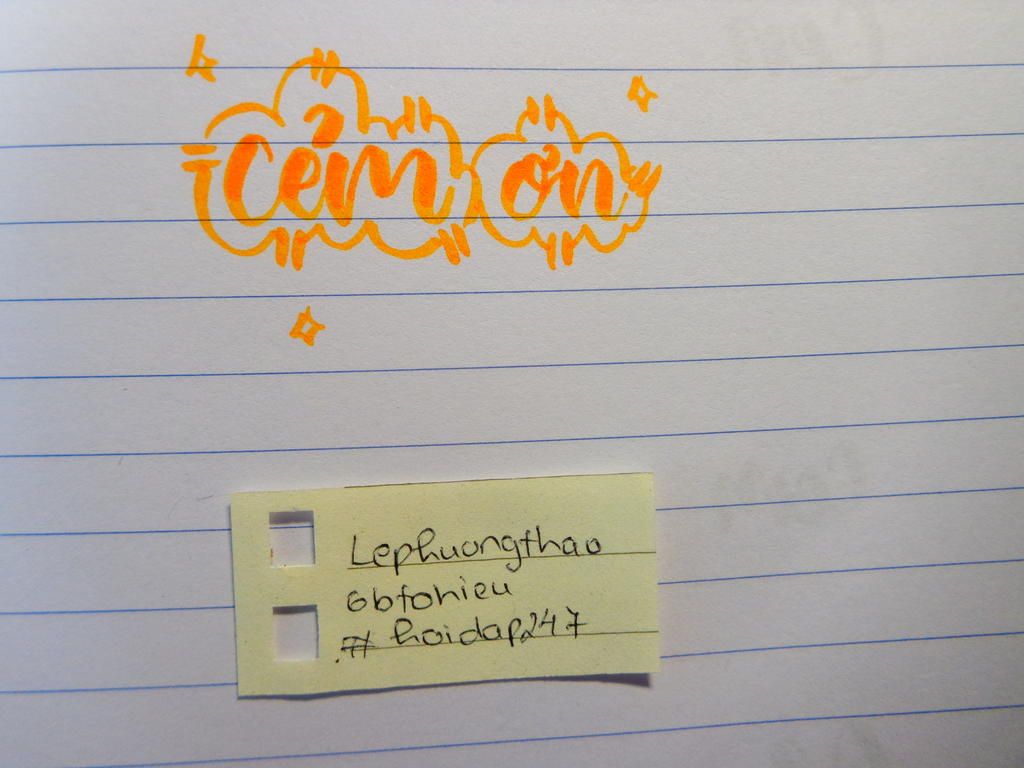 Cảm ơn
Lephuongthao
6btohieu
# hoidap247